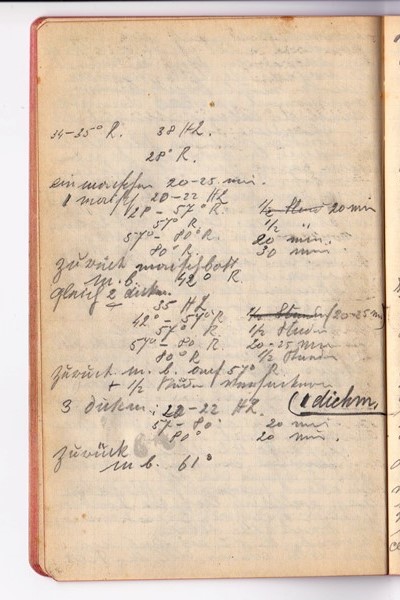 34-35° R. 38 HL.
28° R.
einmaischen 20-25 min.
1 maisch 20-22 HL
28 - 57° R. 20 min
57° R. 1/2
57° - 80° R. 20 min.
80° R. 30 min
zurück maischbott
m. b. 42° R.
gleich 2 dickm.
35 HL
42° - 57° R 20-25 m
57° R. 1/2 Stunde
57 - 80 R. 20-25 min
80° R 1/2 Stunde
zurück m. b. auf 57° R.
+ 1/2 Stunde
3 dickm.: 22-22 HL. (1 dickm.
57 - 80° 20 min
80° 20 min.
zurück
m b. 61°